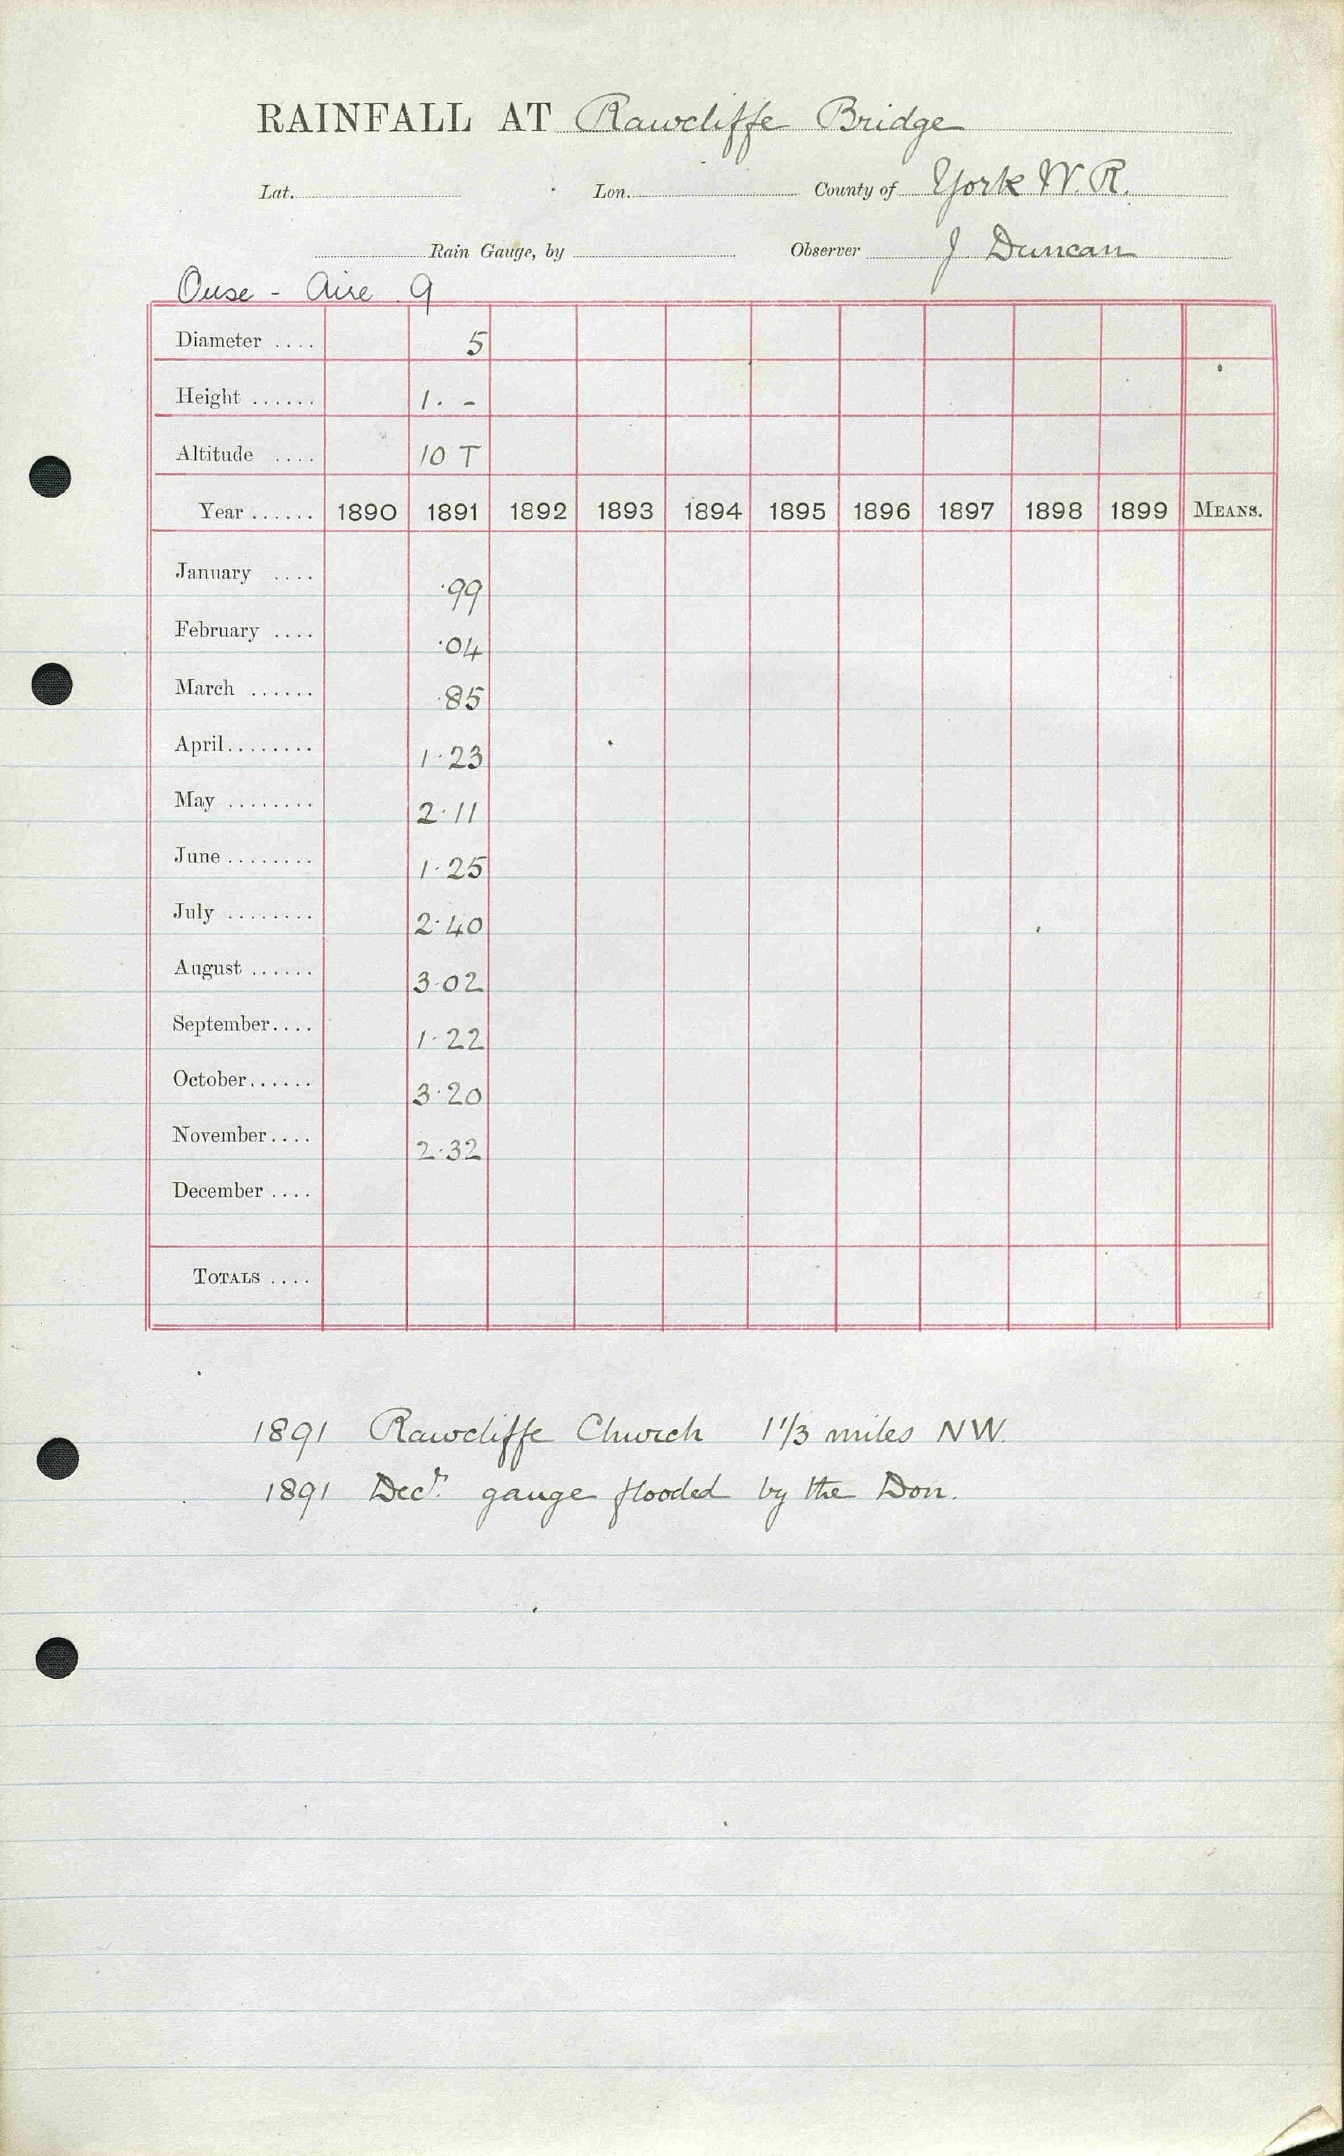 RAINFALL AT Rawcliffe Bridge
Lat. Lon. County of York W. R.
Rain Gauge, by Observer J Duncan
Ouse - Aire 9
Diameter .... 5
Height ...... 1. -
Altitude .... 10 T
Year ...... 1890 1891 1892 1893 1894 1895 1896 1897 1898 1899 MEANS.
January .... ·99
February .... ·04
March ...... ·85
April ........ 1·23
May ........ 2·11
June ........ 1·25
July ........ 2·40
August ...... 3·02
September .... 1·22
October ...... 3·20
November .... 2·32
December ....
TOTALS ....
1891 Rawcliffe Church 1 1/3 miles NW.
1891 Decr. gauge flooded by the Don.